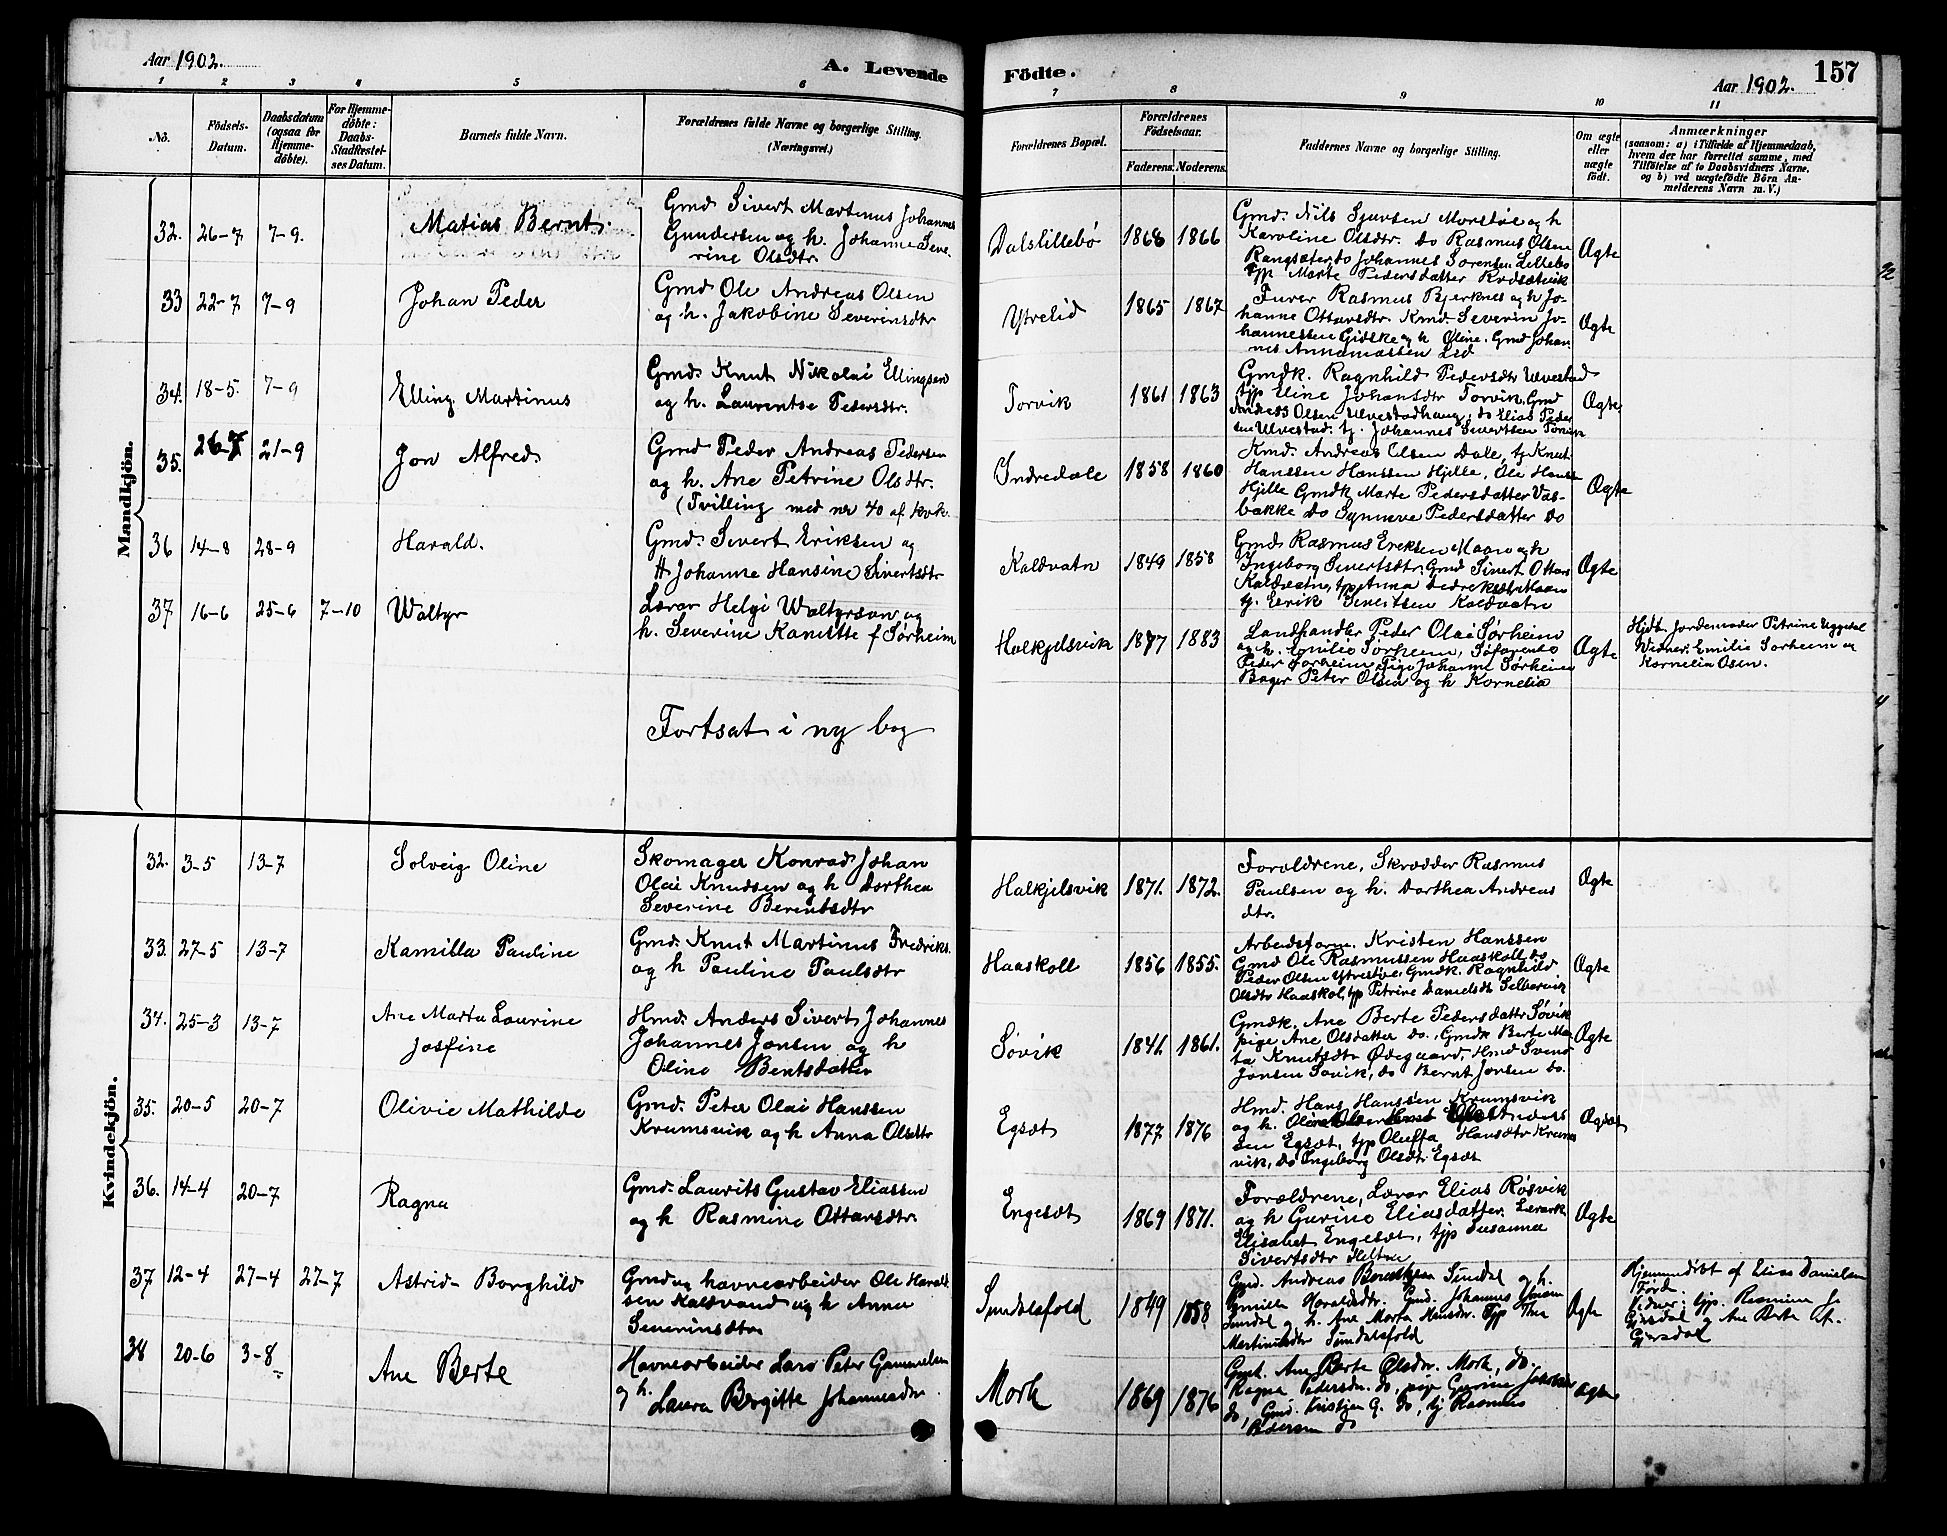 Aar 1902.
A. Levende
Födte.
Aar 1902.
157
1 2 3 4 5 6 7 8 9 10 11
No.
Födsels-
Datum.
Daabsdatum
(ogsaa for
Hjemme-
döbte).
For Hjemme-
döbte:
Daabs-
Stadfæstel-
ses Datum.
Barnets fulde Navn.
Forældrenes fulde Navne og borgerlige Stilling.
(Næringsvei.)
Forældrenes Bopæl.
Forældrenes
Födselsaar.
Faderens. Moderens.
Faddernes Navne og borgerlige Stilling.
Om ægte
eller
uægte
födt.
Anmærkninger
(saasom: a) i Tilfælde af Hjemmedaab,
hvem der har forrettet samme, med
Tilföielse af to Daabsvidners Navne,
og b) ved uægtefödte Börn An-
melderens Navn m. V.)
Mandkjön.
32. 26-7 7-9. Matias Bernt.
Gmd. Sivert Martinus Johannes
Gundersen og h. Johanne Seve-
rine Olsdtr
Dalslillebø 1868 1866
Gmd. Nils Sjursen Morstøl og h
Karoline Olsdtr. do Rasmus Olsen
Rangsæter do Johannes Sørensen Lillebø
tjp Marte Pedersdatter
Ægte
33 22-7 7-9 Johan Peder
Gmd Ole Andreas Olsen
og h. Jakobine Severinsdtr
Ytrelid 1865 1867
Rasmus Bjerknes og h Jo-
hanne Ottarsdtr. Kmd Severin Jo-
hannessen Gidske og h Oline. Gmd Johan
nes Annanıassen Lid
Ægte
34. 18-5. 7-9 Elling Martinus
Gmd. Knut Nikolai Ellingsen
og h. Laurentse Pedersdtr.
Torvik 1861 1863
Gmdk. Ragnhild Pedersdtr Ulvestad
tjp Eline Johansdtr Torvik Gmd
Andreas Olsen Ulvestadhaug, do Elias Peder
sen Ulvestad. tj. Johannes Sivertsen Torvik
Ægte
35. 26-7 21-9 Jon Alfred
Gmd Peder Andreas Pedersen
og h. Ane Petrine Olsdtr.
(Tvilling med nr 40 af kvk.
Indredale 1858 1860
Kmd. Andreas Olsen Dale, tj Knut
Hanssen Hanssen Hjelle, Ole Hanse
Hjelle Gmdk Marte Pedersdatter Vas-
bakke do Synneve Pedersdatter do
Ægte
36 14-8 28-9 Harald.
Gmd. Sivert Eriksen og
H Johanne Hansine Sivertsdtr
Kaldvatn 1849 1858
Gmd. Rasmus Eriksen Maan og h
Ingeborg Sivertsdtr. Gmd Sivert Ottars
Kaldvatn, tjp Anna Maan
tj. Eirik Sivertsen Kaldvatn
Ægte
37 16-6 25-6 7-10 Waltyr
Lærar Helgi Waltyrson og
h. Severine Kamitte f Sørheim
Halkjelsvik 1877 1883
Landhandler Peder Olai Sørheim
og h. Emilie Sørheim,
Peder Sørheim Pige Johanne Sørheim
Bager Peter Olsen og h Kornelia
Ægte
Hjdt. Jordemoder Petrine Uggedal
Vidner. Emilie Sørheim og
Kornelia Osen.
Fortsat i ny bog
Kvindekjön.
32. 3-5 13-7 Solveig Oline
Skomager Konrad Johan
Olai Knudsen og h Dorthea
Severine Berentsdtr
Halkjelsvik 1871. 1872.
Forældrene, Skrædder Rasmus
Paulsen og h. Dorthea Andreas
dtr.
Ægte
33. 27-5 13-7 Kamilla Pauline
Gmd. Knut Martinus Fredriks.
og h Pauline Paulsdtr
Haaskoll 1856 1855.
Arbeidsform. Kristen Hanssen
Gmd Ole Rasmussen Haaskoll do
Peder Olsen Ytrestøl, Gmdk. Ragnhild
Olsdtr Haaskol, tjp Petrine Danielsdtr
Ægte
34. 25-3 13-7 Ane Marta Laurine
Josfine
Hmd. Anders Sivert Johannes
Johannes Jonsen og h
Oline Bentsdatter
Søvik 1841. 1861.
Gmdk. Ane Berte Pedersdattr Søvik
pige Ane Olsdatter do., Gmdk Berte Mar
ta Knutsdtr Ødegaard, Hmd Svend
Jonsen Søvik, do Bernt Jonsen do.
Ægte
35. 20-5 20-7 Olivie Mathilde
Gmd. Peter Olai Hanssen
Krumsvik og h Anna Olsdtr
Egsæt 1877 1876
Hmd. Hans Hanssen Krumsvik
og h. Anders
sen Egsæt, tjp Oluffa Hansdtr Krums
vik, do Ingeborg Olsdtr Egsæt
Ægte
36. 14-4 20-7 Ragna
Gmd. Laurits Gustav Eliassen
og h Rasmine Ottarsdtr.
Engesæt 1869 1871.
Forældrene, Lærar Elias Røsvik
og h Gurine Eliasdatter.
Elisabet Engesæt, tjp Susanna
Sivertsdtr
Ægte
37 12-4 27-4 27-7 Astrid Borghild
Gmd og havnearbeider Ole Harald-
sen Kaldvand og h Anna
Severinsdtr
Sundalsfold 1849 1858
Gmd. Andreas Sundal og h.
Haraldsdtr. Gmd. Johannes
Sundal og h. Ane Marta Tjp Thea
Sundalsfold
Ægte
Hjemmedöbt af Elias Danielsen
Förde.
Vidner: tjp. Rasmine
Gjersdal og Ane Berte
Gjersdal
38 20-6 3-8 Ane Berte
Havnearbeider Lars Peter Gammelsen
og h. Laura Birgitte Johannesdtr
Mork 1869 1876
Gmk. Ane Berte Olsdtr. Mork, do.
Ragna Pedersdtr. do, pige Gurine
do, Gmd. Kristian G. do, tj Rasmus
Pedersen do
Ægte